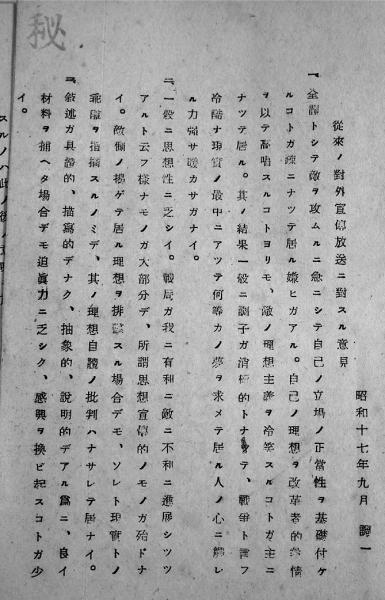 秘
昭和十七年九月　調一
從來ノ對外宣傳放送ニ對スル意見
一、全體トシテ敵ヲ攻ムルニ急ニシテ自己ノ立場ノ正當性ヲ基礎付ケ
ルコトガ疎ニナツテ居ル嫌ヒガアル。自己ノ理想ヲ改革者的熱情
ヲ以テ高唱スルコトヨリモ、敵ノ理想主義ヲ冷笑スルコトガ主ニ
ナツテ居ル。其ノ結果一般ニ調子ガ消極的トナツテ、戰爭ト言フ
冷酷ナ現實ノ最中ニアツテ何等カノ夢ヲ求メテ居ル人ノ心ニ觸レ
ル力強サ暖カサガナイ。
二、一般ニ思想性ニ乏シイ。戰局ガ我ニ有利ニ敵ニ不利ニ進展シツツ
アルト云フ樣ナモノガ大部分デ、所謂思想宣傳的ノモノガ殆ドナ
イ。敵側ノ揭ゲテ居ル理想ヲ排擊スル場合デモ、ソレト現實トノ
乖離ヲ指摘スルノミデ、其ノ理想自體ノ批判ハナサレテ居ナイ。
三、敍述ガ具體的、描寫的デナク、抽象的、說明的デアル爲ニ、良イ
材料ヲ捕ヘタ場合デモ迫眞力ニ乏シク、感興ヲ換ビ起スコトガ少
イ。
スルノハ此ノ後